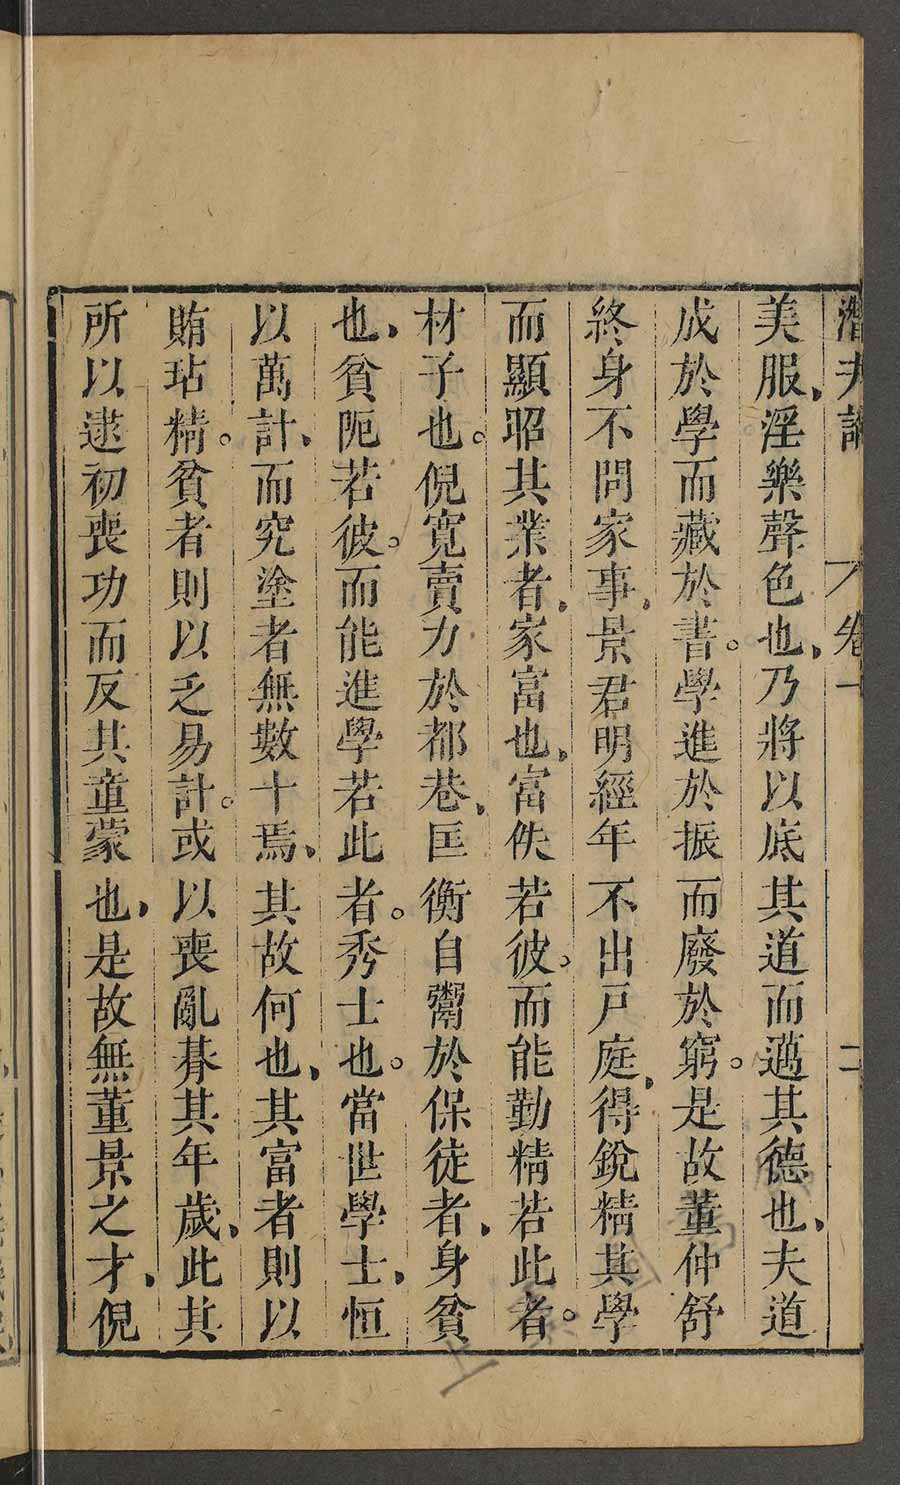 潛夫論 卷一 二
美服、淫樂聲色也、乃將以底其道而邁其德也、夫道
成於學而藏於書。學進於振而廢於窮。是故董仲舒
終身不問家事、景君明經年不出戶庭、得銳精其學
而顯昭其業者、家富也、富佚若彼、而能勤精若此者。
材子也。倪寬賣力於都巷、匡衡自鬻於保徒者、身貧
也、貧阨若彼。而能進學若此者。秀士也。當世學士、恒
以萬計、而究塗者無數十焉、其故何也、其富者則以
賄玷精。貧者則以乏易計。或以喪亂朞其年歲、此其
所以逮初喪功而反其童蒙也、是故無董景之才、倪